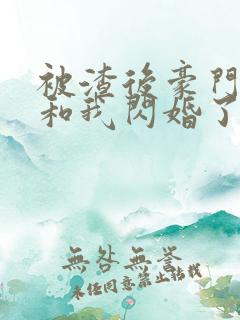 被渣後豪門
和我閃婚了
無咎無譽
未经同意禁止转载